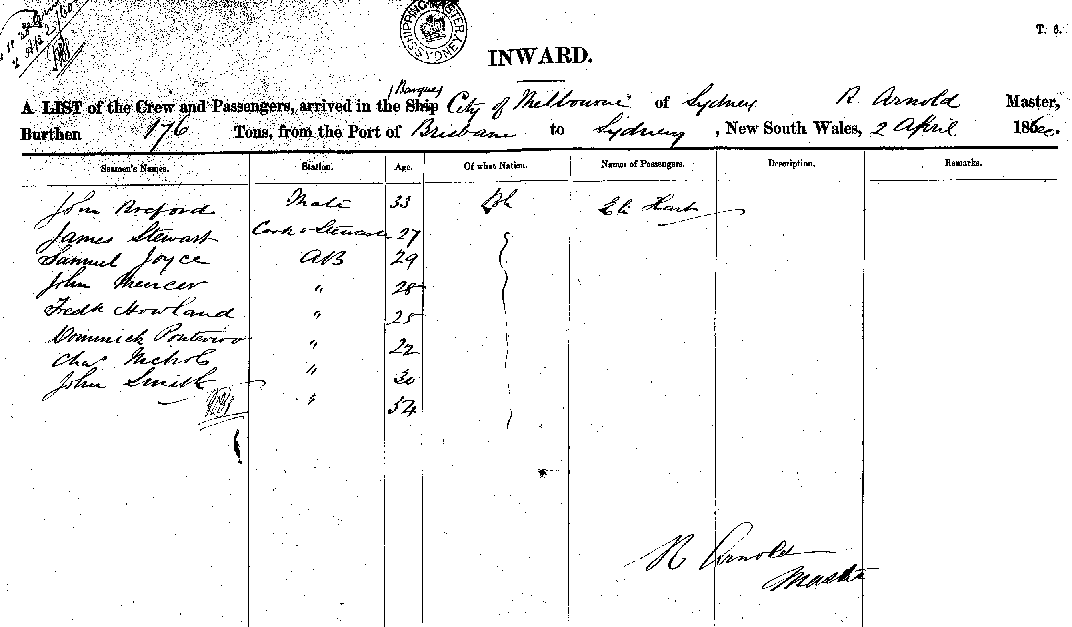 SHIPPING MASTER SYDNEY
T. 6.
INWARD.
Barque
A LIST of the Crew and Passengers, arrived in the Ship City of Melbourne of Sydney R Arnold Master,
Burthen 176 Tons, from the Port of Brisbane to Sydney, New South Wales, 2 April 186
Seamen's Names. Station. Age. Of what Nation. Names of Passengers. Description. Remarks.
John Mate 33 Eli Hart
James Stewart Cook & Steward 27
Samuel Joyce AB 29
John Mercer " 28
Fredk Howland " 25
Dominick " 22
Chas Nichols " 30
John Smith " 54
R Arnold
Master